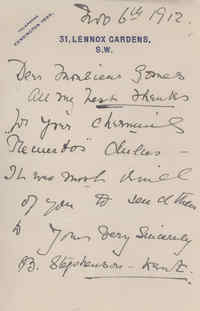 TELEPHONE
KENSINGTON
Nov 6th 1912.
31, LENNOX GARDENS,
S.W.
Dear Monsieur Gomez
All my best thanks
for your charming
It was most kind
of you to send them
Yours Very Sincerely
B. Stephenson - Kent.